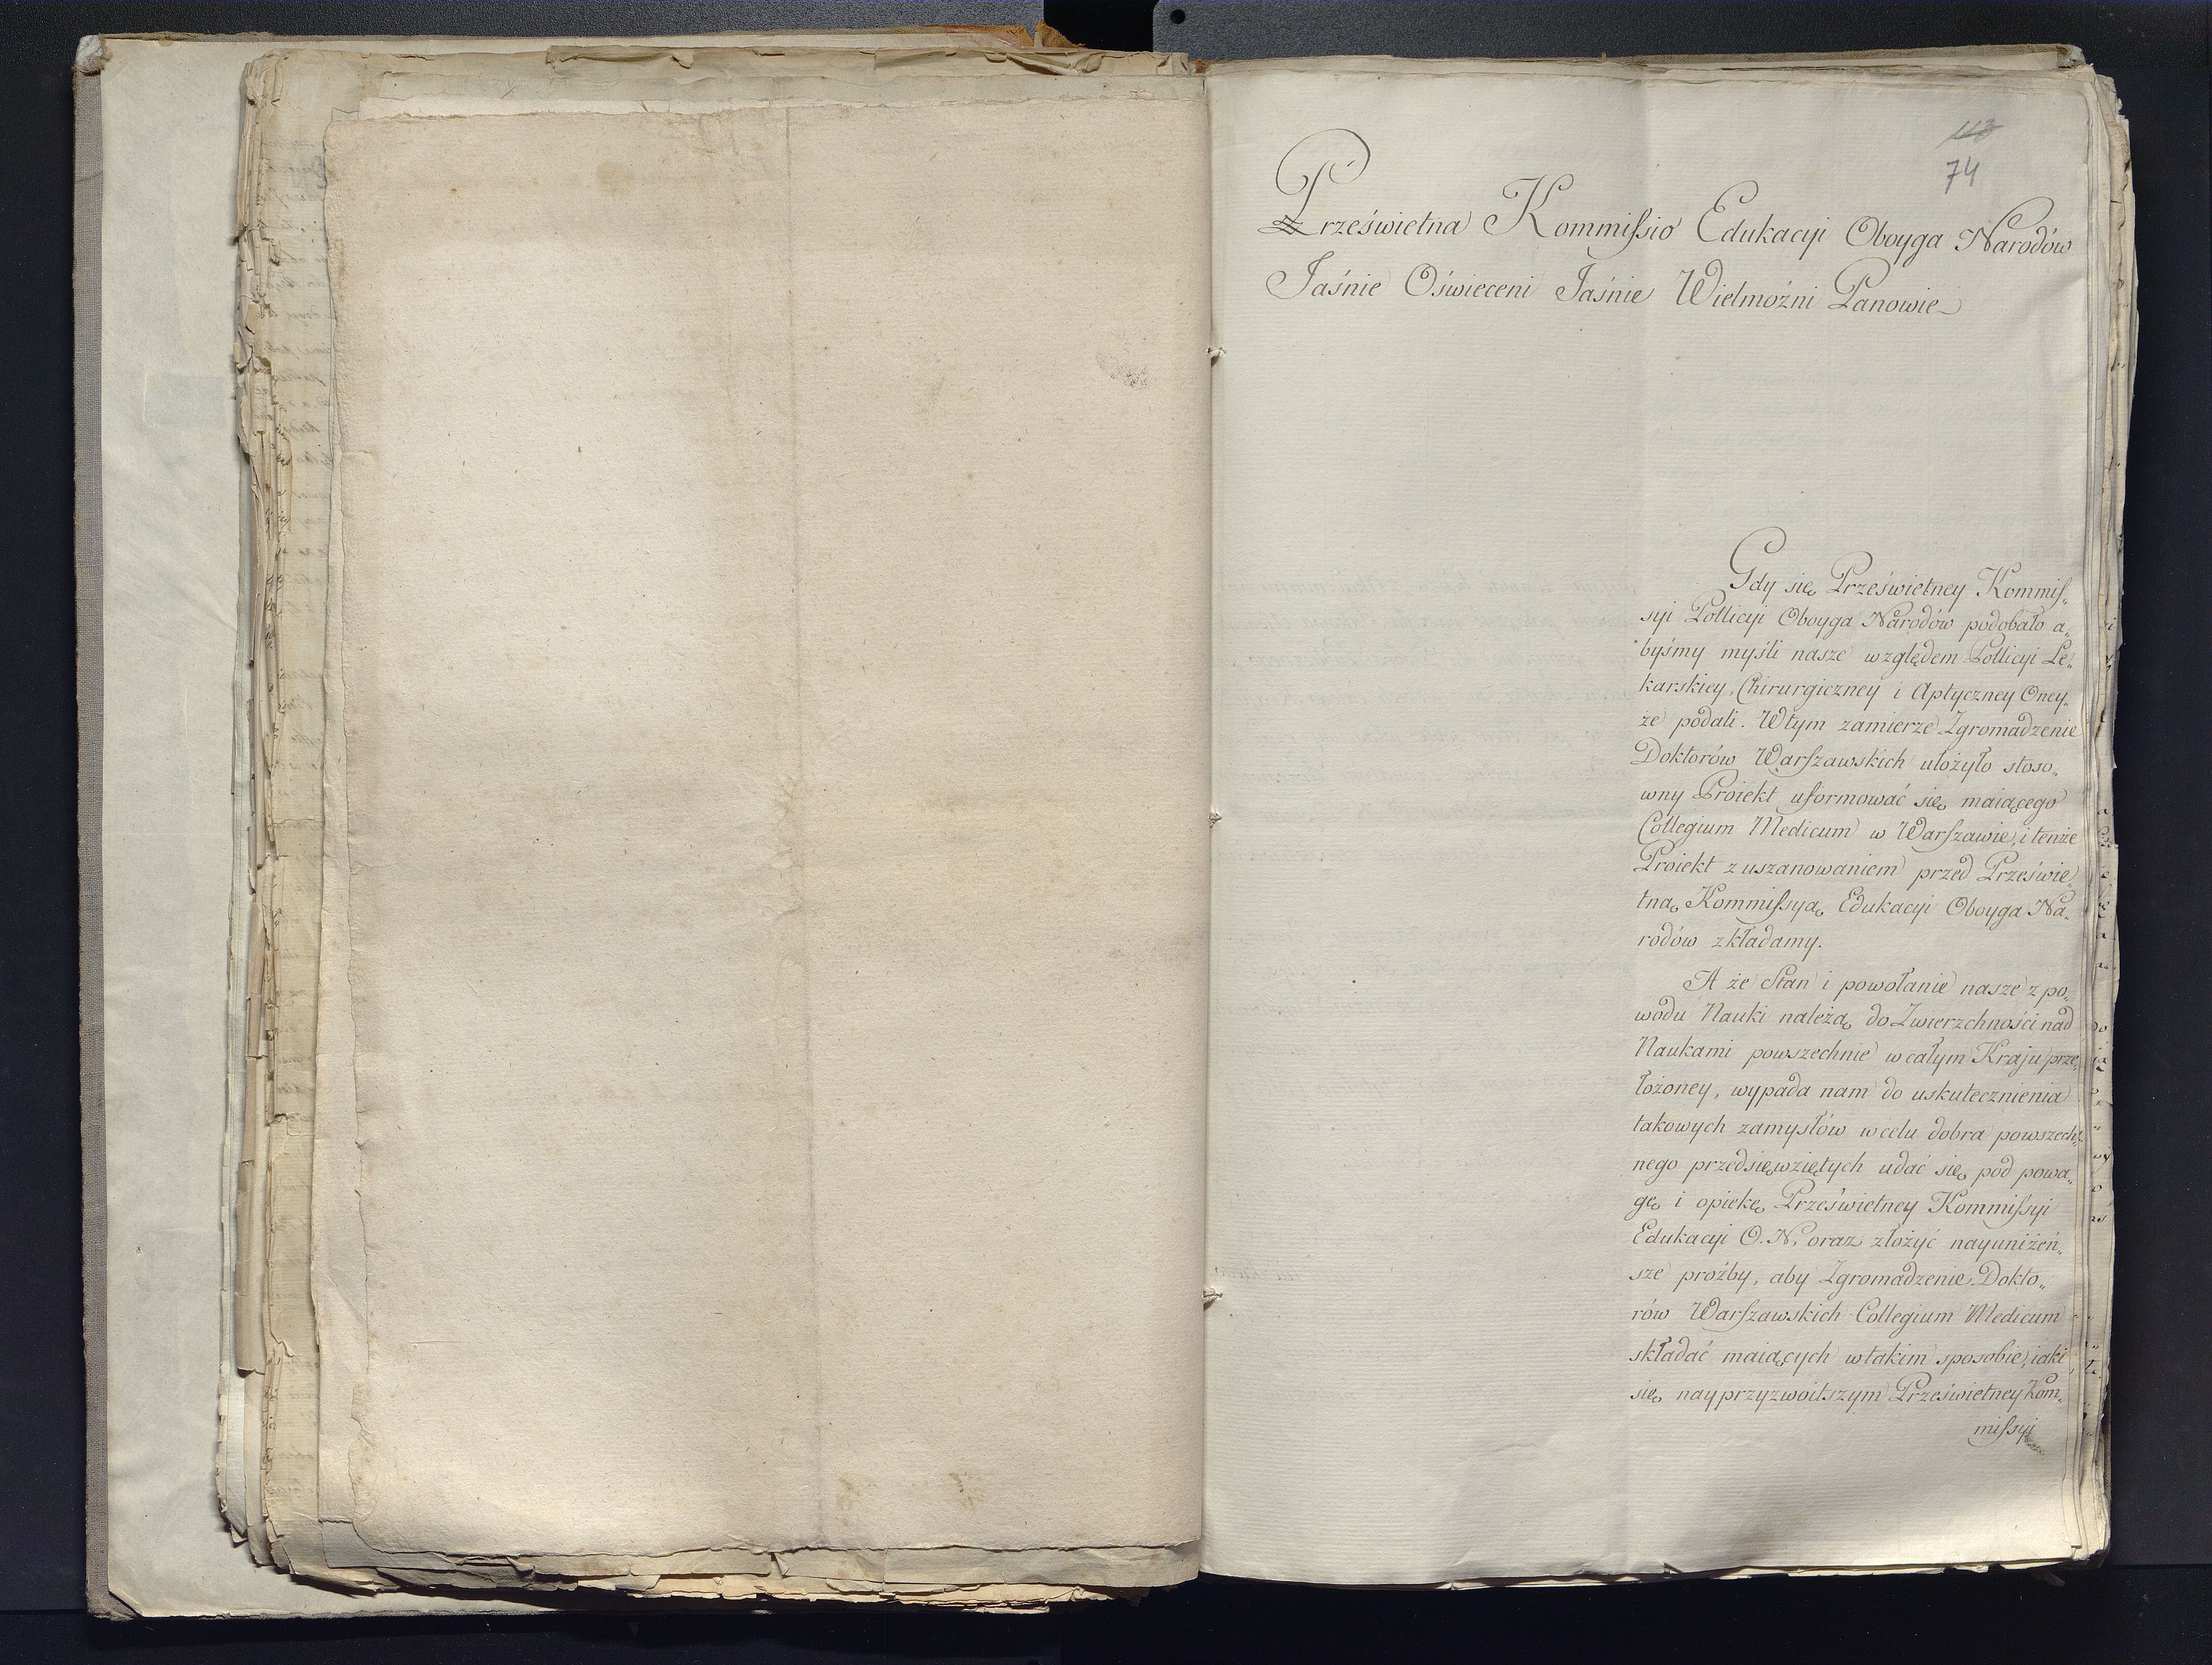 74
Prześwietna Kommissio Edukacyi Oboyga Narodów
Jaśnie Oświeceni Jaśnie Wielmożni Panowie
Gdy się Prześwietney Kommis„
syi Pollicyi Oboyga Narodów podobało a„
byśmy myśli nasze względem Pollicyi Le„
karskiey, Chirurgiczney i Aptyczney Oney„
że podali. Wtym zamierze Zgromadzenie
Doktorów Warszawskich ułożyło stoso„
wny Proiekt uformować się maiącego
Collegium Medicum w Warszawie, i tenże
Proiekt z uszanowaniem przed Prześwie„
tną Kommissyą Edukacyi Oboyga Na„
rodów zkładamy.
A że Stan i powołanie nasze z po„
wodu Nauki należą do Zwierzchności nad
Naukami powszechnie w całym Kraju prze„
łożoney, wypada nam do uskutecznienia
takowych zamysłów w celu dobra powszech„
nego przedsięwziętych udać się pod powa„
gę i opiekę Prześwietney Kommissyi
Edukacyi O. N. oraz złożyć nayuniżeń„
sze proźby, aby Zgromadzenie Dokto„
rów Warszawskich Collegium Medicum
składać maiących w takim sposobie, iaki
się nayprzyzwoitszym Prześwietney Kom„
missyi